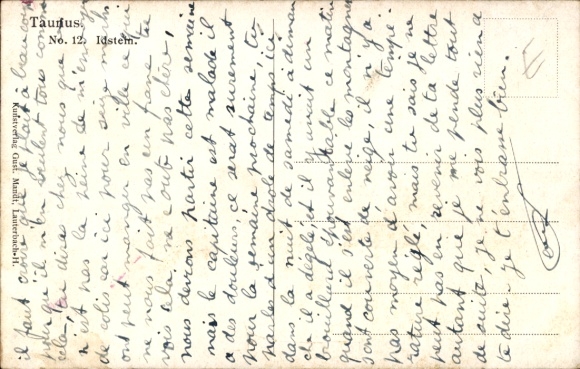 Taunus.
No. 12. Idstein.
Kunstverlag Gust. Mandt, Lauterbach-H.
il faut croire que le
puisqu'il m'en veulent tous comme
cela, tu diras chez nous que
n'est pas la peine de m'en
de colis ici pour seize
ont peut manger en ville ce qui
ne nous fait pas un franc tu
vois cela ne coute pas cher,
nous devions partir cette semaine
mais le capitaine est malade il
a des douleurs, ce serat surement
pour la semaine prochaine, tu
parles d'un drole de temps ici
dans la nuit de samedi à diman
che il a dégelé, et il y avait un
brouillard épouvantable ce matin
quand il s'est enlevé les montagnes
sont couverte de neige, il n'y a
pas moyen d'avoir une tempé-
rature réglé, mais tu sais je ne
peut pas en revenir de ta lettre
autant que je me pende tout
de suite, je ne vois plus rien a
te dire je t'embrasse bien.